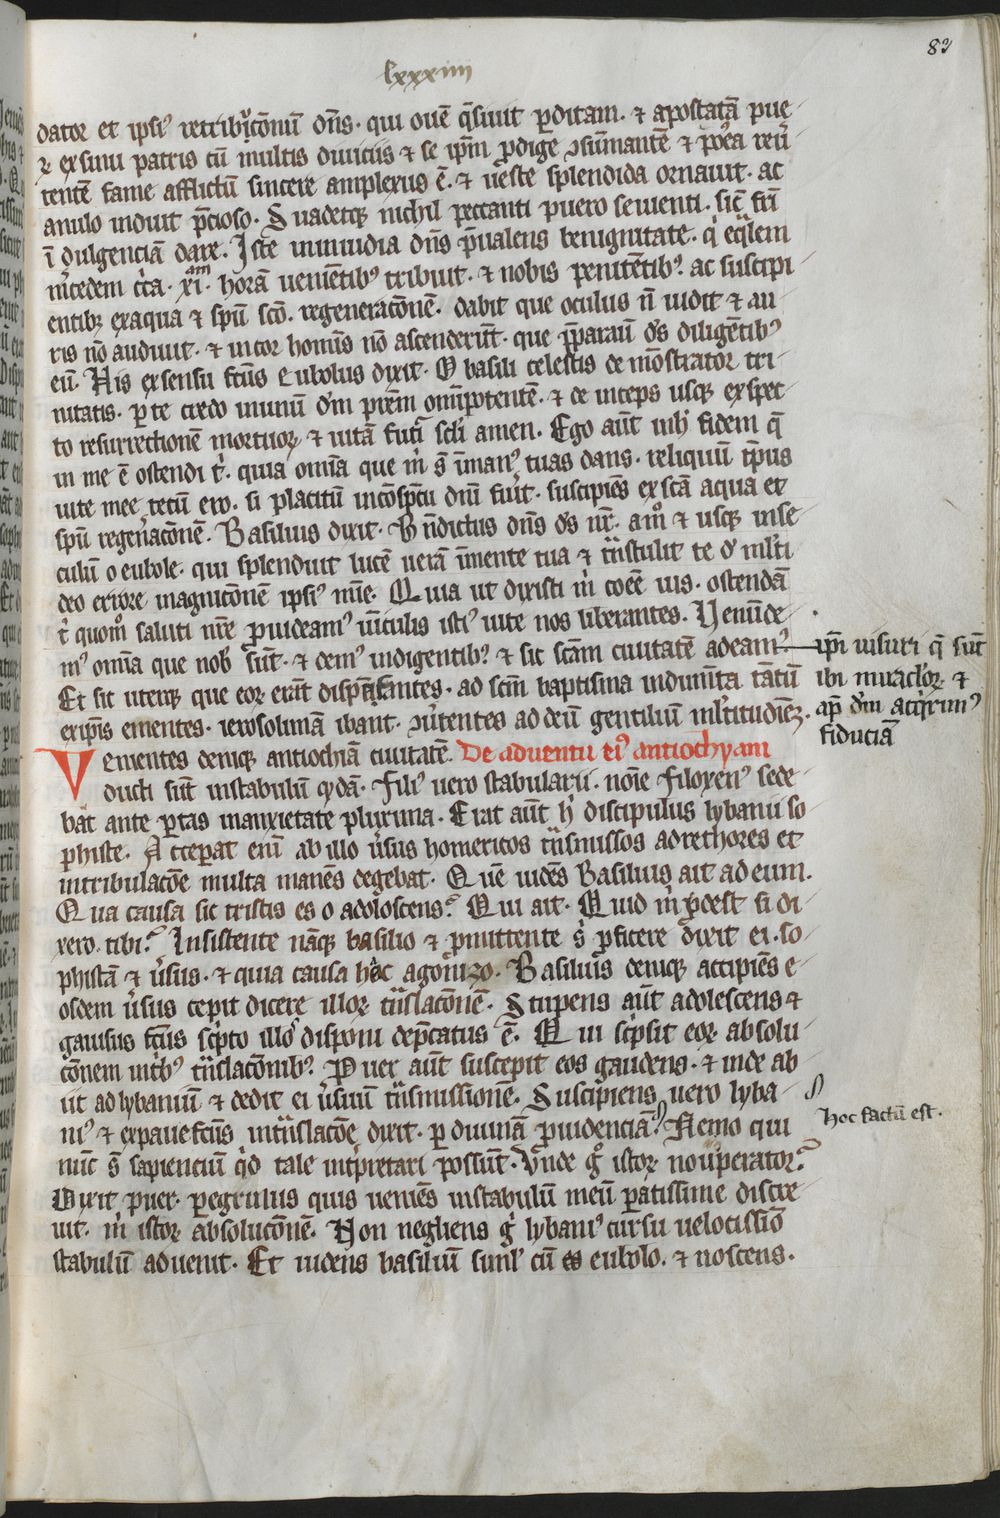 83
lxxxiiii
dator et ipsi⁹ retribuc̄onū dn̄s · qui ouē q̄siuit ꝑditam · ⁊ apostatā pue
ꝛ ex sinu patris cū multis diuiciis ⁊ se ip̄m ꝓdige ꝯsūmantē ⁊ pꝰea reu̓
tentē fame afflictū sincere amplexus ē · ⁊ ueste splendida ornauit · ac
anulo induit p̄cioso · Suadetqꝫ nichil peccanti puero seuienti · sic̄ fr̄i
ī dulgenciā dare · Iste inuiudia dn̄s p̄ualens benignitate · q̇ eq̄lem
m̄cedem c̓ca · xi · am horā ueniētibꝰ tribuit · ⁊ nobis penitētibꝰ · ac suscipi
entibꝫ ex aqua ⁊ spū sc̄o · regenerac̄onē · dabit que oculus n̄ uidit ⁊ au
ris nō audiuit · ⁊ in cor homīs nō ascenderūt · que p̄parauī dſ̄ diligētibꝰ
eū · His ex sensu fc̄us Eubolus dixit · O basili celestis de mōstrator tri
nitatis · ꝑ te credo in unū dm̄ pr̄em om̄ipotentē · ⁊ de inceps usqꝫ exspec
to resurrectionē mortuoꝝ ⁊ uitā futi̓ sc̄li amen · Ego aūt in h̓ fidem q̄
in me ē ostendi t̓ · quia omīa que m̓ s̄ ī manꝰ tuas dans · reliquū tp̄us
uite mee tecū ero · si placitū in cōspc̄u diūi fu̓it · suscipiēs ex sc̄a aqua et
spū regen̓ac̄onē · Basilius dixit · Bn̄dictus dn̄s dſ̄ nr̄ · amͦ ⁊ usqꝫ in se
culū o eubole · qui splenduit lucē uerā ī mente tua ⁊ tn̄stulit te d̓ ml̓ti
deo errore in agnic̄onē ipsiꝰ mīe · Quia ut dixisti m̓ coēē uis · ostendā
t̓ quomͦ saluti nr̄e ꝓuideamꝰ uīculis istiꝰ uite nos liberantes · Uenūde
mꝰ omīa que nob̓ sūt · ⁊ demꝰ indigentibꝰ ⁊ sic sc̄am ciuitatē adeamꝰ
ip̄i uisuri q̄ sūt
ibi miraclōꝝ ⁊
ap̄ dm̄ acq̓rimꝰ
fiduciā
Et sic uterqꝫ que eoꝝ erāt dispēsantes · ad sc̄m baptisma indum̄ta tātū
exip̄is ementes · ierosolimā ibant · ꝯu̓tentes ad deū gentiliū ml̓titudiēꝫ ·
Uenientes deniqꝫ antiochiā ciuitatē · De aduentu eiꝰ antiochyam
ducti sūt in stabulū q̓dā · Filiꝰ uero stabularii · noīe Filoxenꝰ sede
bāt ante portas in anxietate plurima · Erat aūt h̓ discipulus lybanii so
phiste · Acceꝑat enī ab illo u̓sus homericos tn̄smissos ad rethores et
in tribulac̄oe multa manēs degebat · Quē uidēs Basilius ait ad eum ·
Qua causa sic tristis es o adoloscens? Qui ait · Quid m̓ ꝓdest si di
xero tibi? Insistente nāqꝫ basilio ⁊ ꝓmittente s̓ ꝓficere dixit ei · so
phistā ⁊ u̓sus · ⁊ quia causa hoc agonizo · Basilius deniqꝫ accipiēs e
osdem u̓sus cepit dicere illoꝝ tn̄slac̄onē · Stupens aūt adolescens ⁊
gauisus fc̄us sc̓pto illoͦ disponi dep̄catus ē · Qui sc̓psit eoꝝ absolu
c̄onem in tbꝰ tn̄slac̄onibꝰ · Puer aūt suscepit eos gaudens · ⁊ inde ab
iit ad lybaniū ⁊ dedit ei u̓suū tn̄smissionē · Suscipiens uero lyba
niꝰ ⁊ expauefc̄us in tn̄slac̄oe dixit · ꝑ diuinā ꝓuidenciā · Nemo qui
hoc factū est ·
nūc s̄ sapienciū q̓d tale int̓pretari possūt · Unde gͦ istoꝝ nouꝰ perator?
Dixit puer · ꝑegrinus quis ueniēs in stabulū meū ꝑatissime discre
uit · m̓ istoꝝ absoluc̄onē · Non negliens g̓ lybaniꝰ cursu uelocissīo
stabulū aduenit · Et uidens basiliū siml̓ cū eubolo · ⁊ noscens ·